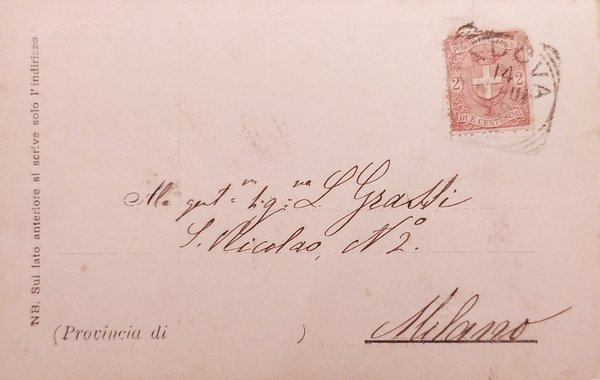 NB. Sul lato anteriore si scrive solo l'indirizzo
2 2
DUE CENTESIMI
14
Alla gent.ma Sig.na L Grassi
S. Nicolao, N° 2.
Milano
(Provincia di )